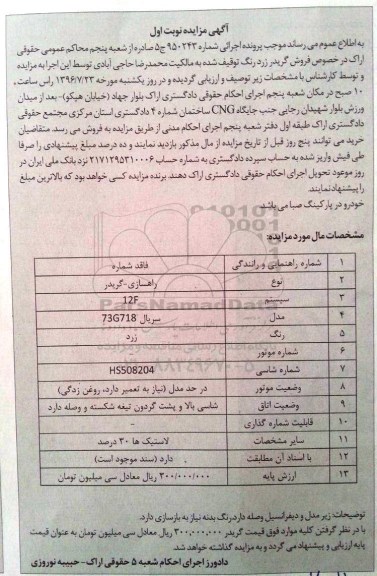 آگهی مزایده نوبت اول
به اطلاع عموم می رساند بموجب پرونده اجرائی شماره ۹۵۰۲۴۳ ج۵ صادره از شعبه پنجم محاکم عمومی حقوقی
اراک در خصوص فروش گریدر زرد رنگ توقیف شده به مالکیت محمدرضا حاجی آبادی توسط این اجرا به مزایده
و توسط کارشناس با مشخصات زیر توصیف و ارزیابی گردیده و در روز یکشنبه مورخه ۱۳۹۶/۷/۲۳ راس ساعت
۱۰ صبح در مکان شعبه پنجم اجرای احکام حقوقی دادگستری اراک بلوار جهاد (خیابان هپکو)- بعد از میدان
ورزش بلوار شهیدان رجایی جنب جایگاه CNG ساختمان شماره ۲ دادگستری استان مرکزی مجتمع حقوقی
دادگستری اراک طبقه اول دفتر شعبه پنجم اجرای احکام مدنی از طریق مزایده به فروش می رسد متقاضیان
خرید می توانند پنج روز قبل از تاریخ مزایده از مال مذکور بازدید نمایند و ده درصد مبلغ پیشنهادی را صرفا
طی فیش واریز شده به حساب سپرده دادگستری به شماره حساب ۲۱۷۱۲۹۵۳۱۰۰۰۶ نزد بانک ملی ایران در
روز موعود تحویل اجرای احکام حقوقی دادگستری اراک دهند. برنده مزایده کسی خواهد بود که بالاترین مبلغ
را پیشنهاد نمایند.
خودرو در پارکینگ صبا می باشد.
مشخصات مال مورد مزایده:
۱ شماره راهنمایی و رانندگی فاقد شماره
۲ نوع راهسازی-گریدر
۳ سیستم 12F
۴ مدل سریال 73G718
۵ رنگ زرد
۶ شماره موتور -
۷ شماره شاسی HS508204
۸ وضعیت موتور در حد مدل (نیاز به تعمیر دارد، روغن زدگی)
۹ وضعیت اتاق شاسی بالا و پشت گردون تیغه شکسته و وصله دارد
۱۰ قابلیت شماره گذاری -
۱۱ سایر مشخصات لاستیک ها ۳۰ درصد
۱۲ با اسناد آن مطابقت دارد (سند موجود است)
۱۳ ارزش پایه ۳۰۰/۰۰۰/۰۰۰ ریال معادل سی میلیون تومان
توضیحات: زیر مدل و دیفرانسیل وصله دارد رنگ بدنه نیاز به بازسازی دارد.
با در نظر گرفتن کلیه موارد فوق قیمت گریدر ۳۰۰,۰۰۰,۰۰۰ ریال معادل سی میلیون تومان به عنوان قیمت
پایه ارزیابی و پیشنهاد می گردد و به مزایده گذاشته خواهد شد.
دادورز اجرای احکام شعبه ۵ حقوقی اراک- حبیبه نوروزی